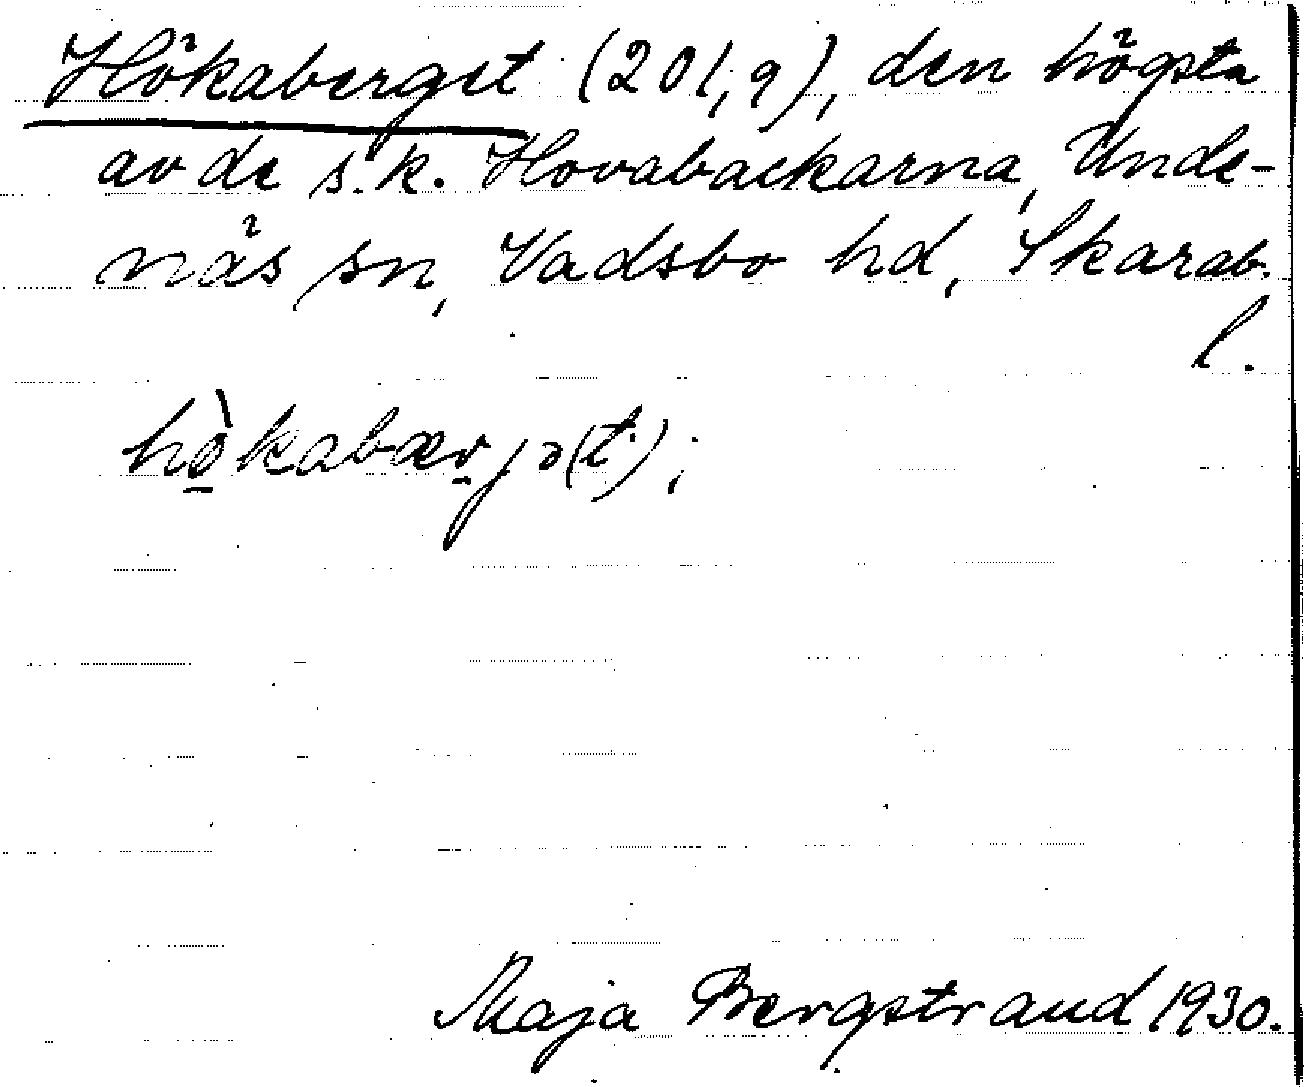 Hökaberget (201,9), den högsta
av de s.k. Hovabackarna, Unde-
näs sn, Vadsbo hd, Skarab.
l.
hò̱kabær̠jə(t);
Maja Bergstrand 1930.